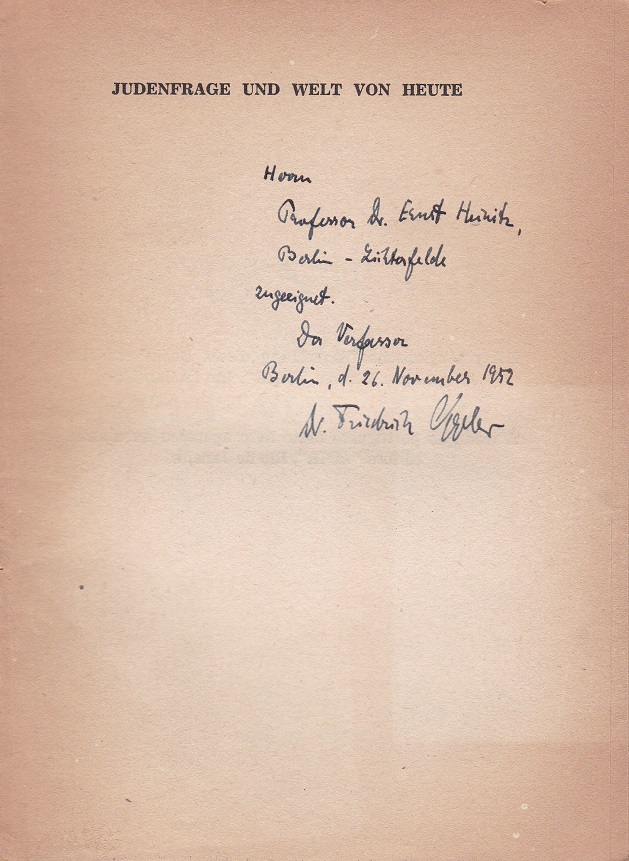 JUDENFRAGE UND WELT VON HEUTE
Herrn
Professor Dr. Ernst Heinitz,
Berlin - Lichterfelde
zugeeignet.
Der Verfasser
Berlin, d. 26. November 1952
Dr. Friedrich